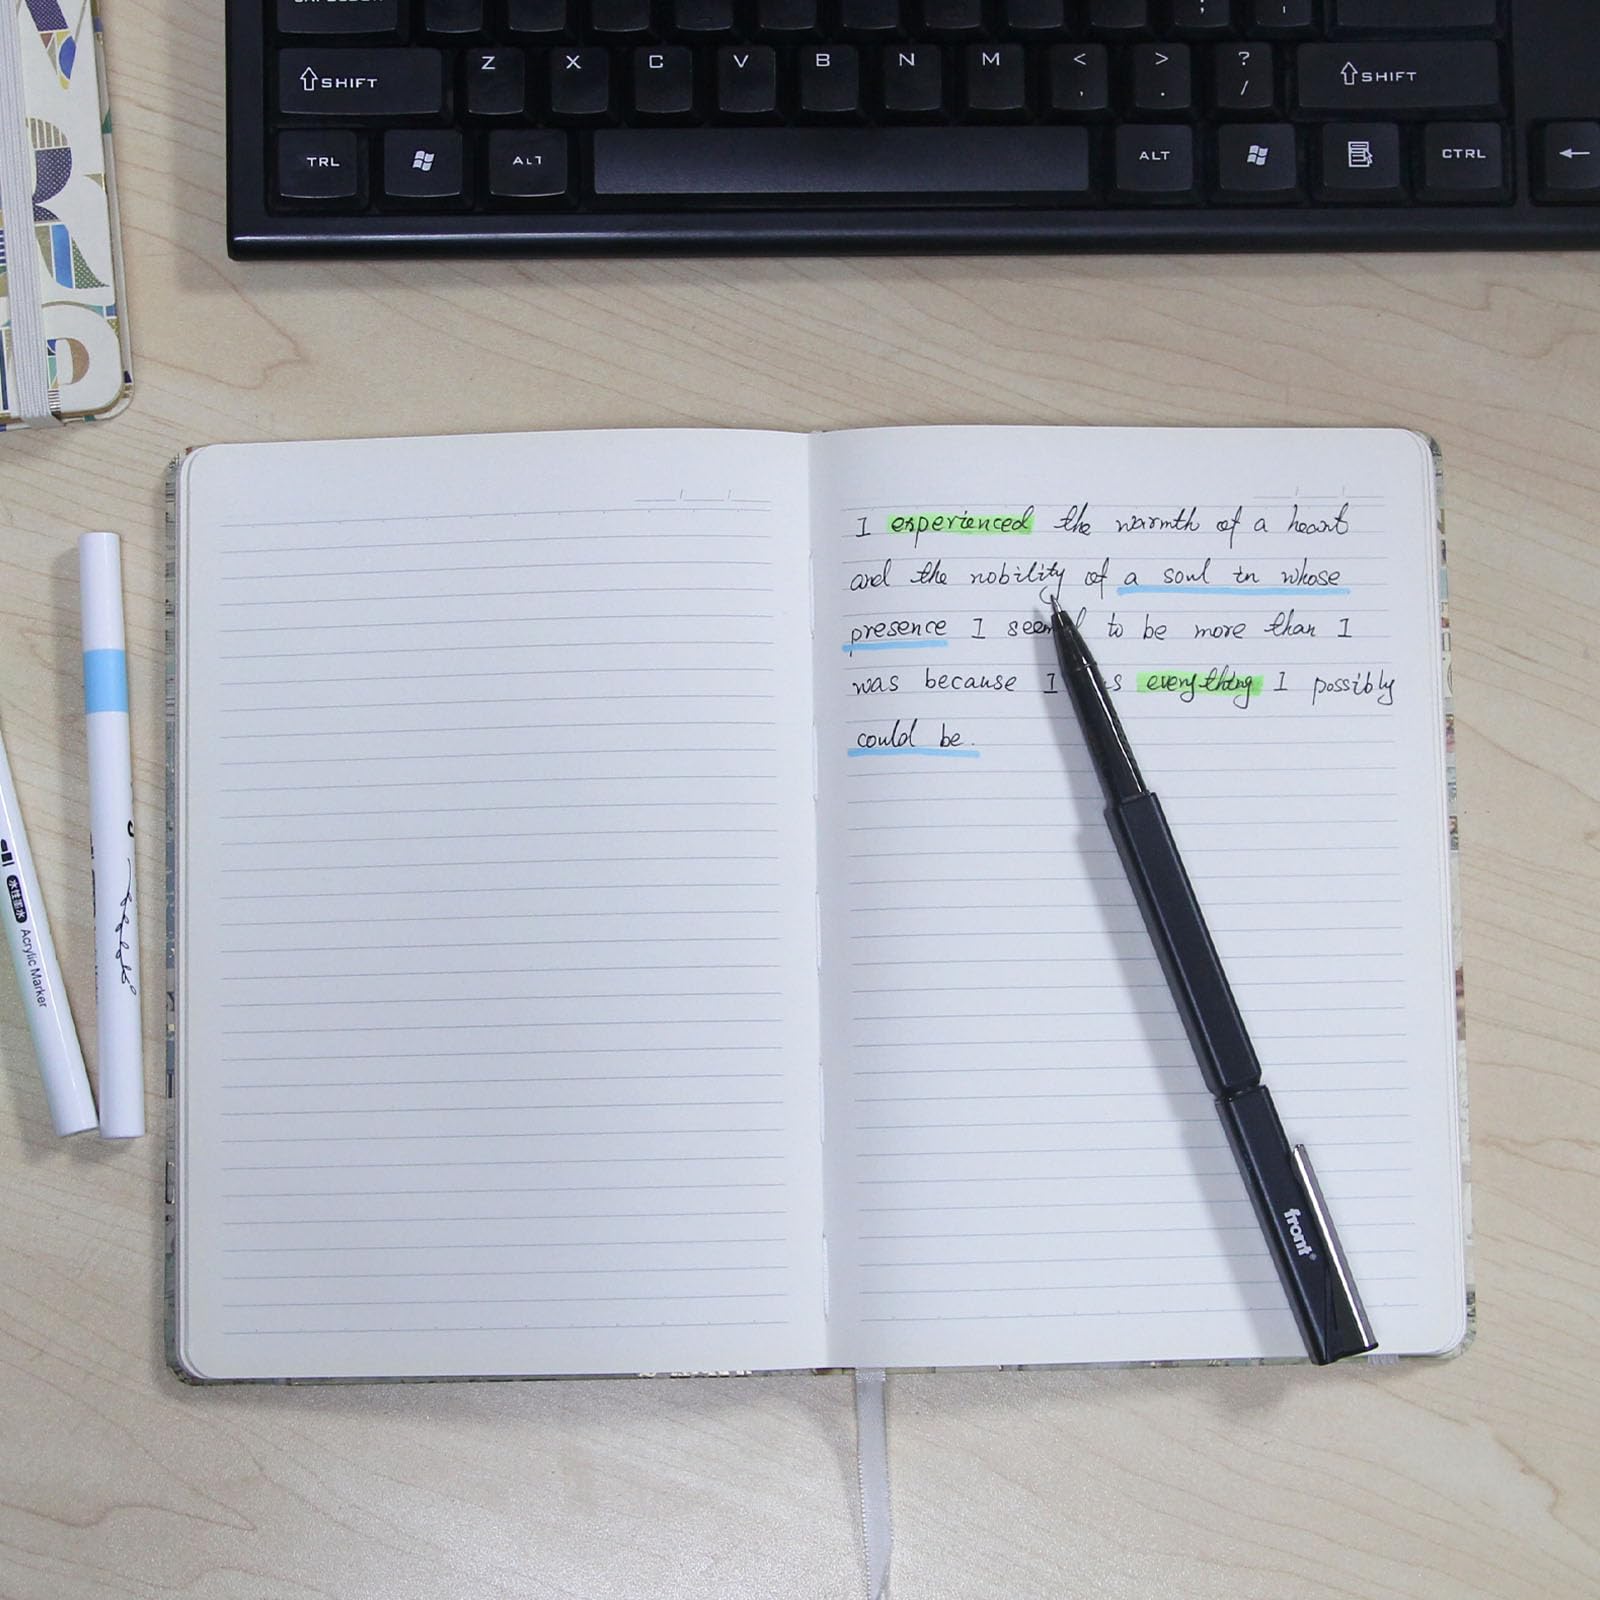 SHIFT
Z X C V B N M < , > . ? /
SHIFT
TRL
ALT
ALT
CTRL
←
I experienced the warmth of a heart
and the nobility of a soul in whose
presence I to be more than I
was because I everything I possibly
could be.
水性墨水 Acrylic Marker
front